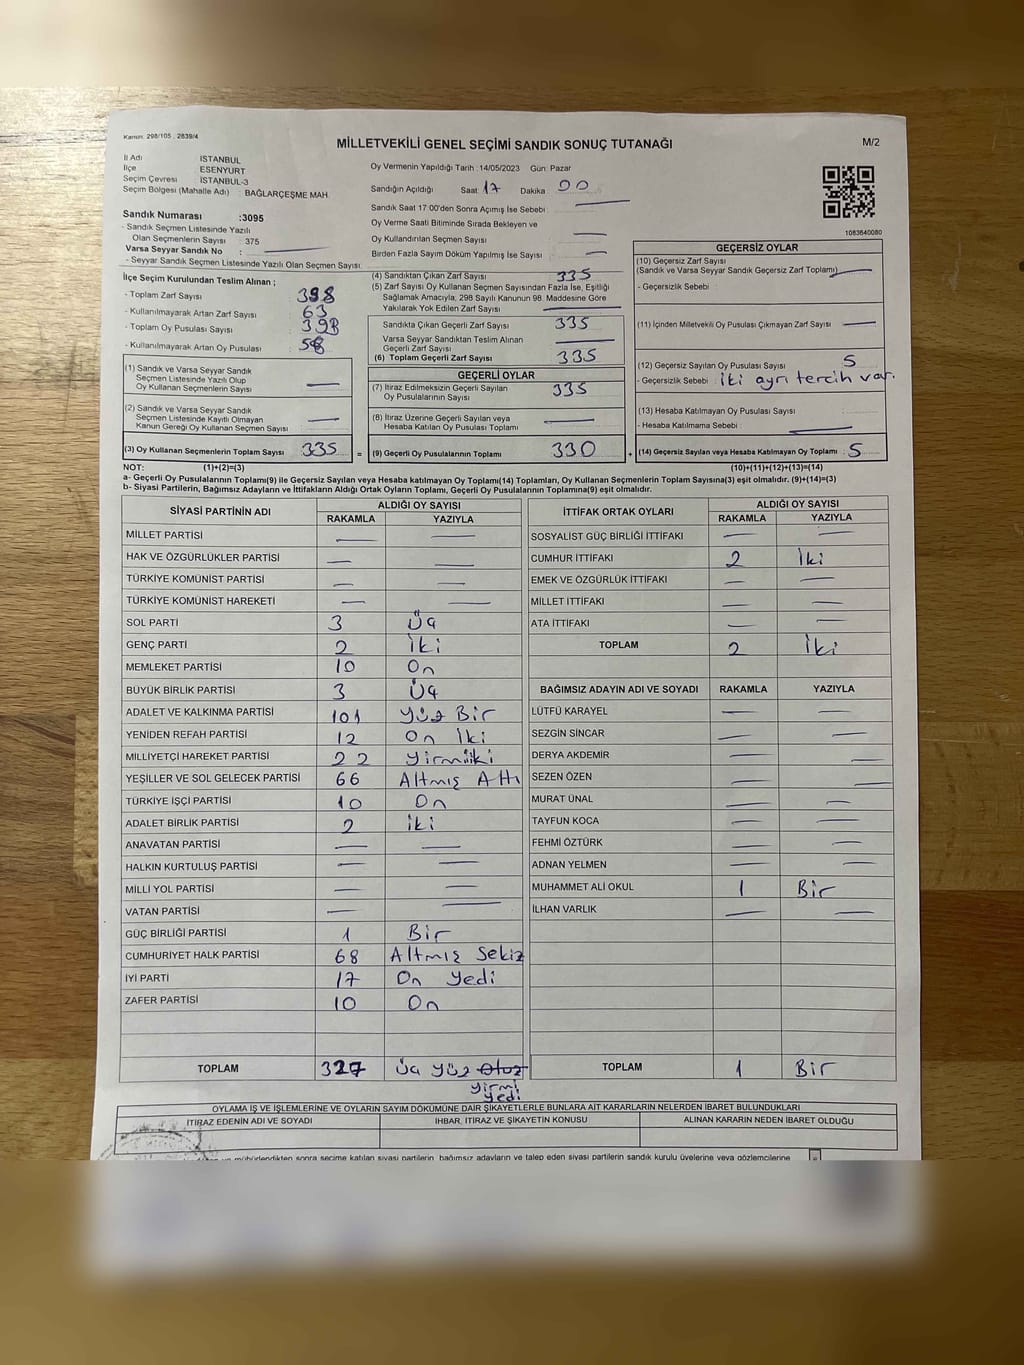 Kanun: 298/105 , 2839/4
MİLLETVEKİLİ GENEL SEÇİMİ SANDIK SONUÇ TUTANAĞI
M/2
İl Adı İSTANBUL
İlçe ESENYURT
Seçim Çevresi İSTANBUL-3
Seçim Bölgesi (Mahalle Adı) : BAĞLARÇEŞME MAH.
Sandık Numarası :3095
- Sandık Seçmen Listesinde Yazılı
Olan Seçmenlerin Sayısı : 375
Varsa Seyyar Sandık No :
- Seyyar Sandık Seçmen Listesinde Yazılı Olan Seçmen Sayısı:
Oy Vermenin Yapıldığı Tarih :14/05/2023 Gün: Pazar
Sandığın Açıldığı Saat 17 Dakika 00
Sandık Saat 17:00'den Sonra Açımış İse Sebebi :
Oy Verme Saati Bitiminde Sırada Bekleyen ve
Oy Kullandırılan Seçmen Sayısı :
Birden Fazla Sayım Döküm Yapılmış İse Sayısı :
1083640080
İlçe Seçim Kurulundan Teslim Alınan ;
- Toplam Zarf Sayısı : 398
- Kullanılmayarak Artan Zarf Sayısı : 63
- Toplam Oy Pusulası Sayısı : 398
- Kullanılmayarak Artan Oy Pusulası : 58
(1) Sandık ve Varsa Seyyar Sandık
Seçmen Listesinde Yazılı Olup
Oy Kullanan Seçmenlerin Sayısı
(2) Sandık ve Varsa Seyyar Sandık
Seçmen Listesinde Kayıtlı Olmayan
Kanun Gereği Oy Kullanan Seçmen Sayısı
(3) Oy Kullanan Seçmenlerin Toplam Sayısı 335 =
(4) Sandıktan Çıkan Zarf Sayısı : 335
(5) Zarf Sayısı Oy Kullanan Seçmen Sayısından Fazla İse, Eşitliği
Sağlamak Amacıyla, 298 Sayılı Kanunun 98. Maddesine Göre
Yakılarak Yok Edilen Zarf Sayısı :
Sandıkta Çıkan Geçerli Zarf Sayısı : 335
Varsa Seyyar Sandıktan Teslim Alınan
Geçerli Zarf Sayısı :
(6) Toplam Geçerli Zarf Sayısı : 335
GEÇERLİ OYLAR
(7) İtiraz Edilmeksizin Geçerli Sayılan
Oy Pusulalarının Sayısı : 335
(8) İtiraz Üzerine Geçerli Sayılan veya
Hesaba Katılan Oy Pusulası Toplamı :
(9) Geçerli Oy Pusulalarının Toplamı 330 +
GEÇERSİZ OYLAR
(10) Geçersiz Zarf Sayısı
(Sandık ve Varsa Seyyar Sandık Geçersiz Zarf Toplamı) :
- Geçersizlik Sebebi :
(11) İçinden Milletvekili Oy Pusulası Çıkmayan Zarf Sayısı :
(12) Geçersiz Sayılan Oy Pusulası Sayısı : 5
- Geçersizlik Sebebi : iki ayrı tercih var.
(13) Hesaba Katılmayan Oy Pusulası Sayısı :
- Hesaba Katılmama Sebebi :
(14) Geçersiz Sayılan veya Hesaba Katılmayan Oy Toplamı : 5
NOT: (1)+(2)=(3) (10)+(11)+(12)+(13)=(14)
a- Geçerli Oy Pusulalarının Toplamı(9) ile Geçersiz Sayılan veya Hesaba katılmayan Oy Toplamı(14) Toplamları, Oy Kullanan Seçmenlerin Toplam Sayısına(3) eşit olmalıdır. (9)+(14)=(3)
b- Siyasi Partilerin, Bağımsız Adayların ve İttifakların Aldığı Ortak Oyların Toplamı, Geçerli Oy Pusulalarının Toplamına(9) eşit olmalıdır.
SİYASİ PARTİNİN ADI ALDIĞI OY SAYISI
RAKAMLA YAZIYLA
MİLLET PARTİSİ
HAK VE ÖZGÜRLÜKLER PARTİSİ
TÜRKİYE KOMÜNİST PARTİSİ
TÜRKİYE KOMÜNİST HAREKETİ
SOL PARTİ 3 Üç
GENÇ PARTİ 2 İki
MEMLEKET PARTİSİ 10 On
BÜYÜK BİRLİK PARTİSİ 3 Üç
ADALET VE KALKINMA PARTİSİ 101 Yüz Bir
YENİDEN REFAH PARTİSİ 12 On İki
MİLLİYETÇİ HAREKET PARTİSİ 22 Yirmiiki
YEŞİLLER VE SOL GELECEK PARTİSİ 66 Altmış Altı
TÜRKİYE İŞÇİ PARTİSİ 10 On
ADALET BİRLİK PARTİSİ 2 İki
ANAVATAN PARTİSİ
HALKIN KURTULUŞ PARTİSİ
MİLLİ YOL PARTİSİ
VATAN PARTİSİ
GÜÇ BİRLİĞİ PARTİSİ 1 Bir
CUMHURİYET HALK PARTİSİ 68 Altmış Sekiz
İYİ PARTİ 17 On Yedi
ZAFER PARTİSİ 10 On
TOPLAM 327 Üç Yüz Otuz
Yirmi
Yedi
İTTİFAK ORTAK OYLARI ALDIĞI OY SAYISI
RAKAMLA YAZIYLA
SOSYALİST GÜÇ BİRLİĞİ İTTİFAKI
CUMHUR İTTİFAKI 2 İki
EMEK VE ÖZGÜRLÜK İTTİFAKI
MİLLET İTTİFAKI
ATA İTTİFAKI
TOPLAM 2 İki
BAĞIMSIZ ADAYIN ADI VE SOYADI RAKAMLA YAZIYLA
LÜTFÜ KARAYEL
SEZGİN SİNCAR
DERYA AKDEMİR
SEZEN ÖZEN
MURAT ÜNAL
TAYFUN KOCA
FEHMİ ÖZTÜRK
ADNAN YELMEN
MUHAMMET ALİ OKUL 1 Bir
İLHAN VARLIK
TOPLAM 1 Bir
OYLAMA İŞ VE İŞLEMLERİNE VE OYLARIN SAYIM DÖKÜMÜNE DAİR ŞİKAYETLERLE BUNLARA AİT KARARLARIN NELERDEN İBARET BULUNDUKLARI
İTİRAZ EDENİN ADI VE SOYADI İHBAR, İTİRAZ VE ŞİKAYETİN KONUSU ALINAN KARARIN NEDEN İBARET OLDUĞU
mühürlendikten sonra seçime katılan siyasi partilerin, bağımsız adayların ve talep eden siyasi partilerin sandık kurulu üyelerine veya gözlemcilerine